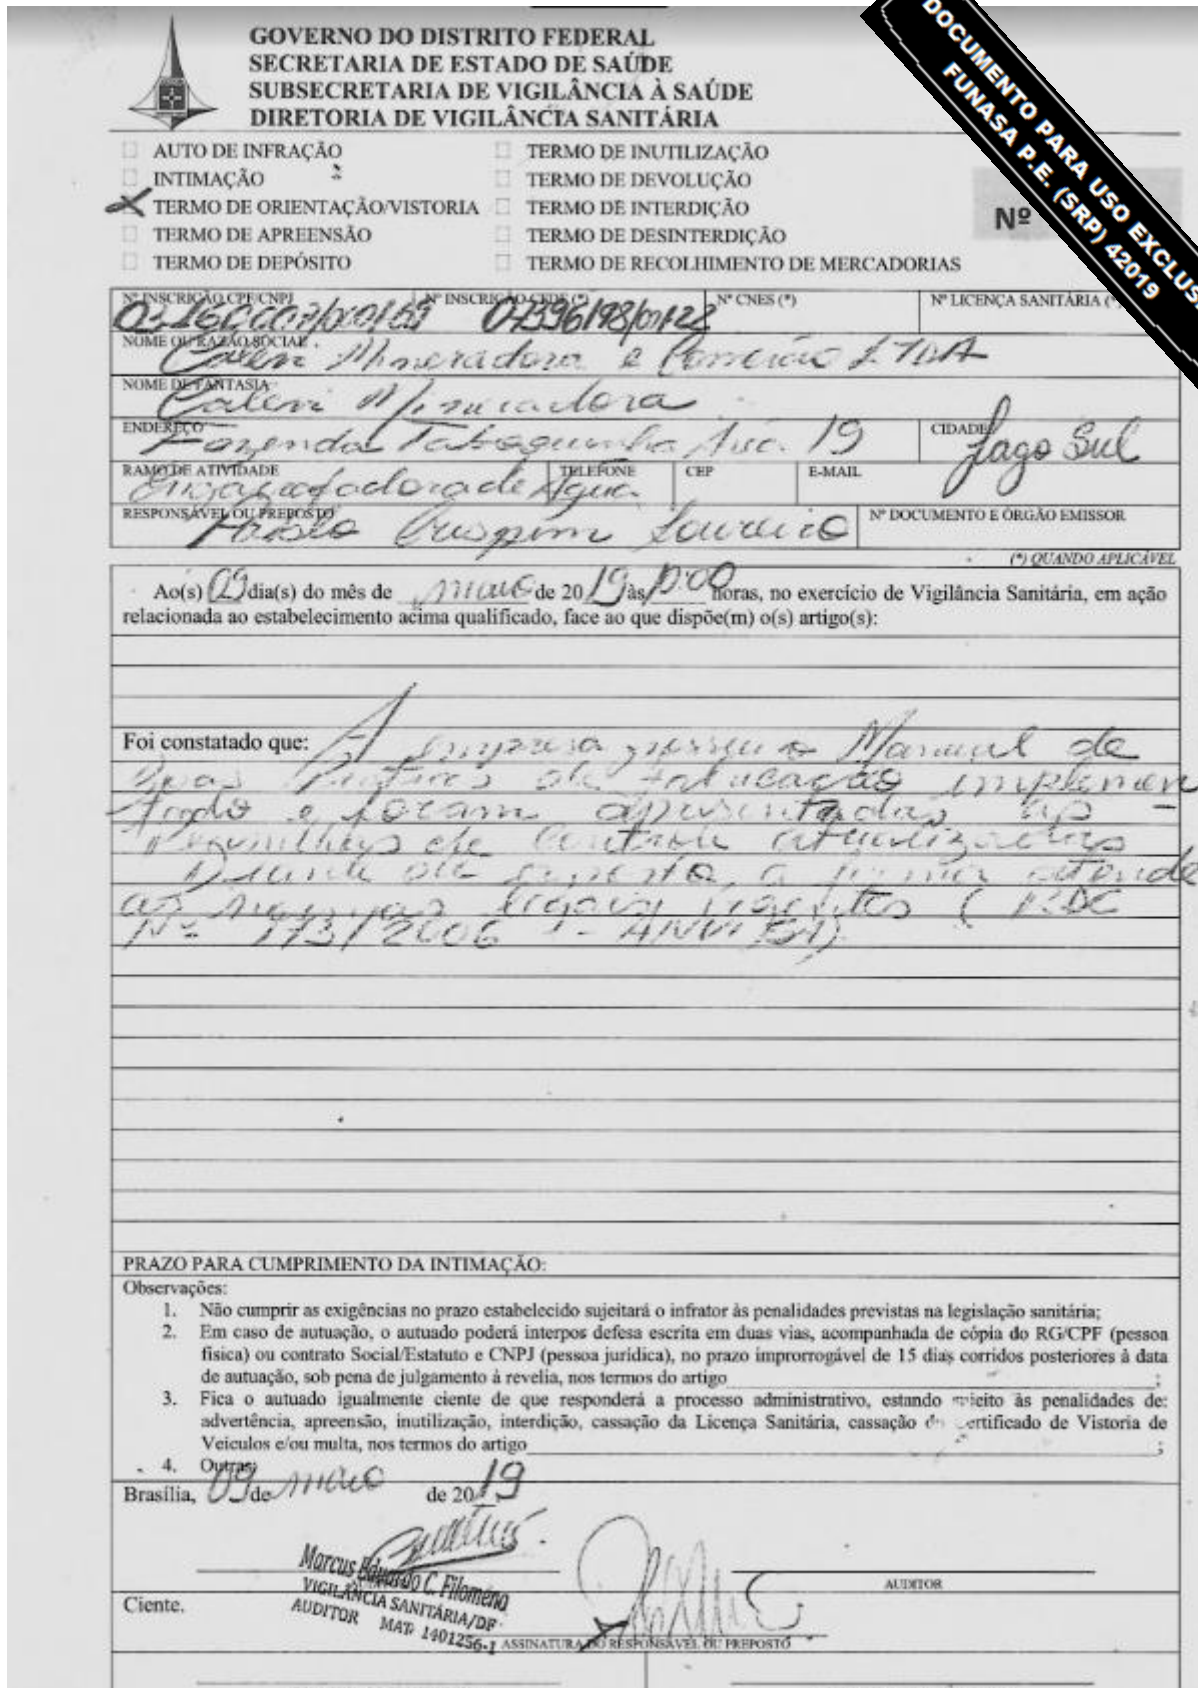 GOVERNO DO DISTRITO FEDERAL
SECRETARIA DE ESTADO DE SAÚDE
SUBSECRETARIA DE VIGILÂNCIA À SAÚDE
DIRETORIA DE VIGILÂNCIA SANITÁRIA
DOCUMENTO PARA USO EXCLUS
FUNASA P.E. (SRP) 42019
AUTO DE INFRAÇÃO
INTIMAÇÃO
TERMO DE ORIENTAÇÃO/VISTORIA
TERMO DE APREENSÃO
TERMO DE DEPÓSITO
TERMO DE INUTILIZAÇÃO
TERMO DE DEVOLUÇÃO
TERMO DE INTERDIÇÃO
TERMO DE DESINTERDIÇÃO
TERMO DE RECOLHIMENTO DE MERCADORIAS
Nº
Nº INSCRIÇÃO CPF/CNPJ Nº INSCRIÇÃO CFDF (*) Nº CNES (*) Nº LICENÇA SANITÁRIA (*
NOME OU RAZÃO SOCIAL
Mineradora e Comércio LTDA
NOME DE FANTASIA
Mineradora
ENDEREÇO Fazenda Taboquinha 19 CIDADE Lago Sul
RAMO DE ATIVIDADE TELEFONE CEP E-MAIL
Engarrafadora de Água
RESPONSÁVEL OU PREPOSTO Crispim Loureiro Nº DOCUMENTO E ÓRGÃO EMISSOR
(*) QUANDO APLICÁVEL
Ao(s) 09 dia(s) do mês de maio de 2019 às horas, no exercício de Vigilância Sanitária, em ação
relacionada ao estabelecimento acima qualificado, face ao que dispõe(m) o(s) artigo(s):
Foi constatado que: A empresa possui o Manual de
Boas Práticas de Fabricação implemen
tado e foram apresentadas as
Planilhas de Controle atualizadas
Diante do exposto, a firma atende
as normas legais vigentes (RDC
Nº 173/2006 - ANVISA).
PRAZO PARA CUMPRIMENTO DA INTIMAÇÃO:
Observações:
1. Não cumprir as exigências no prazo estabelecido sujeitará o infrator às penalidades previstas na legislação sanitária;
2. Em caso de autuação, o autuado poderá interpos defesa escrita em duas vias, acompanhada de cópia do RG/CPF (pessoa
física) ou contrato Social/Estatuto e CNPJ (pessoa jurídica), no prazo improrrogável de 15 dias corridos posteriores à data
de autuação, sob pena de julgamento à revelia, nos termos do artigo ;
3. Fica o autuado igualmente ciente de que responderá a processo administrativo, estando sujeito às penalidades de:
advertência, apreensão, inutilização, interdição, cassação da Licença Sanitária, cassação do Certificado de Vistoria de
Veículos e/ou multa, nos termos do artigo ;
4. Outras:
Brasília, 09 de maio de 2019
Marcus Eduardo C. Filomeno
VIGILÂNCIA SANITÁRIA/DF
AUDITOR MAT. 1401256-1
AUDITOR
Ciente.
ASSINATURA DO RESPONSÁVEL OU PREPOSTO